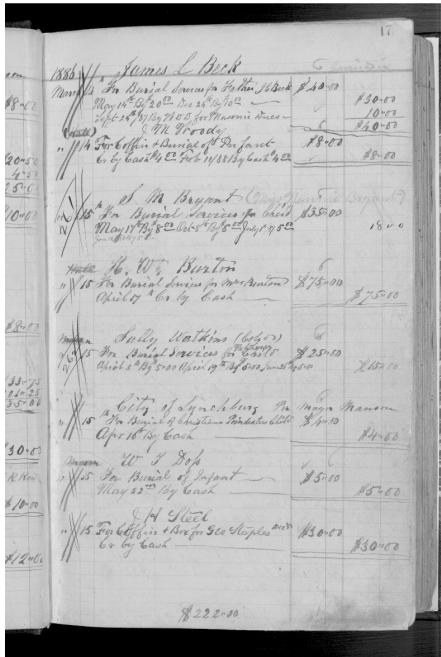 17
1886 James L Beck
March 14 For Burial Services for Father J L Beck $40=00
May 14th By 20.00 Dec 24th By 10.00 $30=00
Sept 24th By W.O.D. for Masonic Dues 10=00
J. M. Woody $40=00
" 14 For Coffin & Burial of Infant $8=00
Cr by Cash $4.00 Feb 11/88 By Cash 4.00 $8=00
S. M. Bryant
15 For Burial Services for Child $35=00
May 17th By 8.00 Oct 8th By 5.00 July 1st By 5.00 18=00
H. W. Burton
" 15 For Burial Services for Mrs Burton $75=00
April 17th Cr by Cash $75=00
Sally Watkins (Col,,)
15 For Burial Services for Child $25=00
April 5th By 5=00 April 19th By 5.00 June 25th By 5=00 $15=00
City of Lynchburg Per Mayor Manson
" 15 For Burial of Child $4=00
Apr 16 By Cash $4=00
W. T. Doss
" 15 For Burial of Infant $5=00
May 22nd By Cash $5=00
J H Steel
" 15 For Coffin & Box for Geo Staples $30=00
Cr by Cash $30=00
$222=00
$8=00
$20=50
4=50
25=00
$10=00
$8=00
33=75
35=00
$30=00
$10=00
$12=00